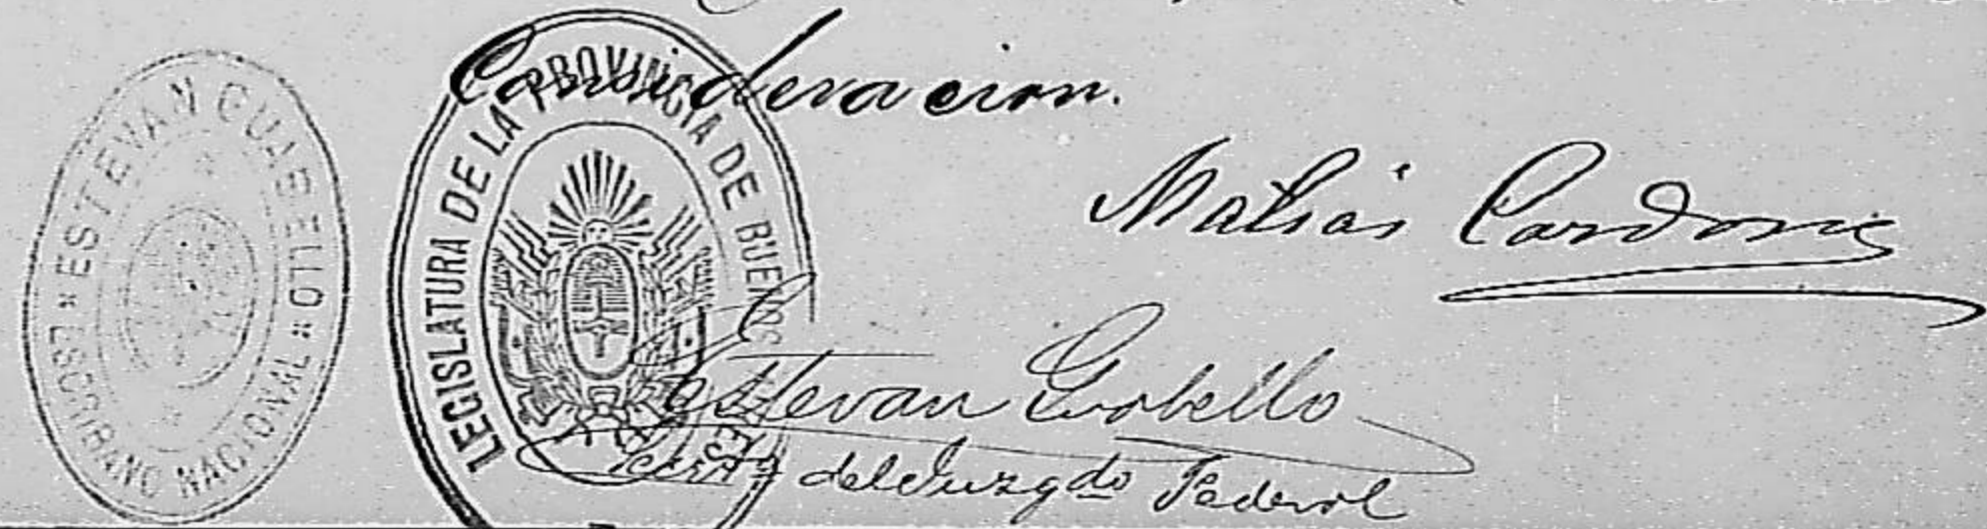 Consideracion.
ESTEVAN GUABELLO
ESCRIBANO NACIONAL
LEGISLATURA DE LA PROVINCIA DE BUENOS AIRES
Matias
Estevan Guabello
del Juzgdo Federal